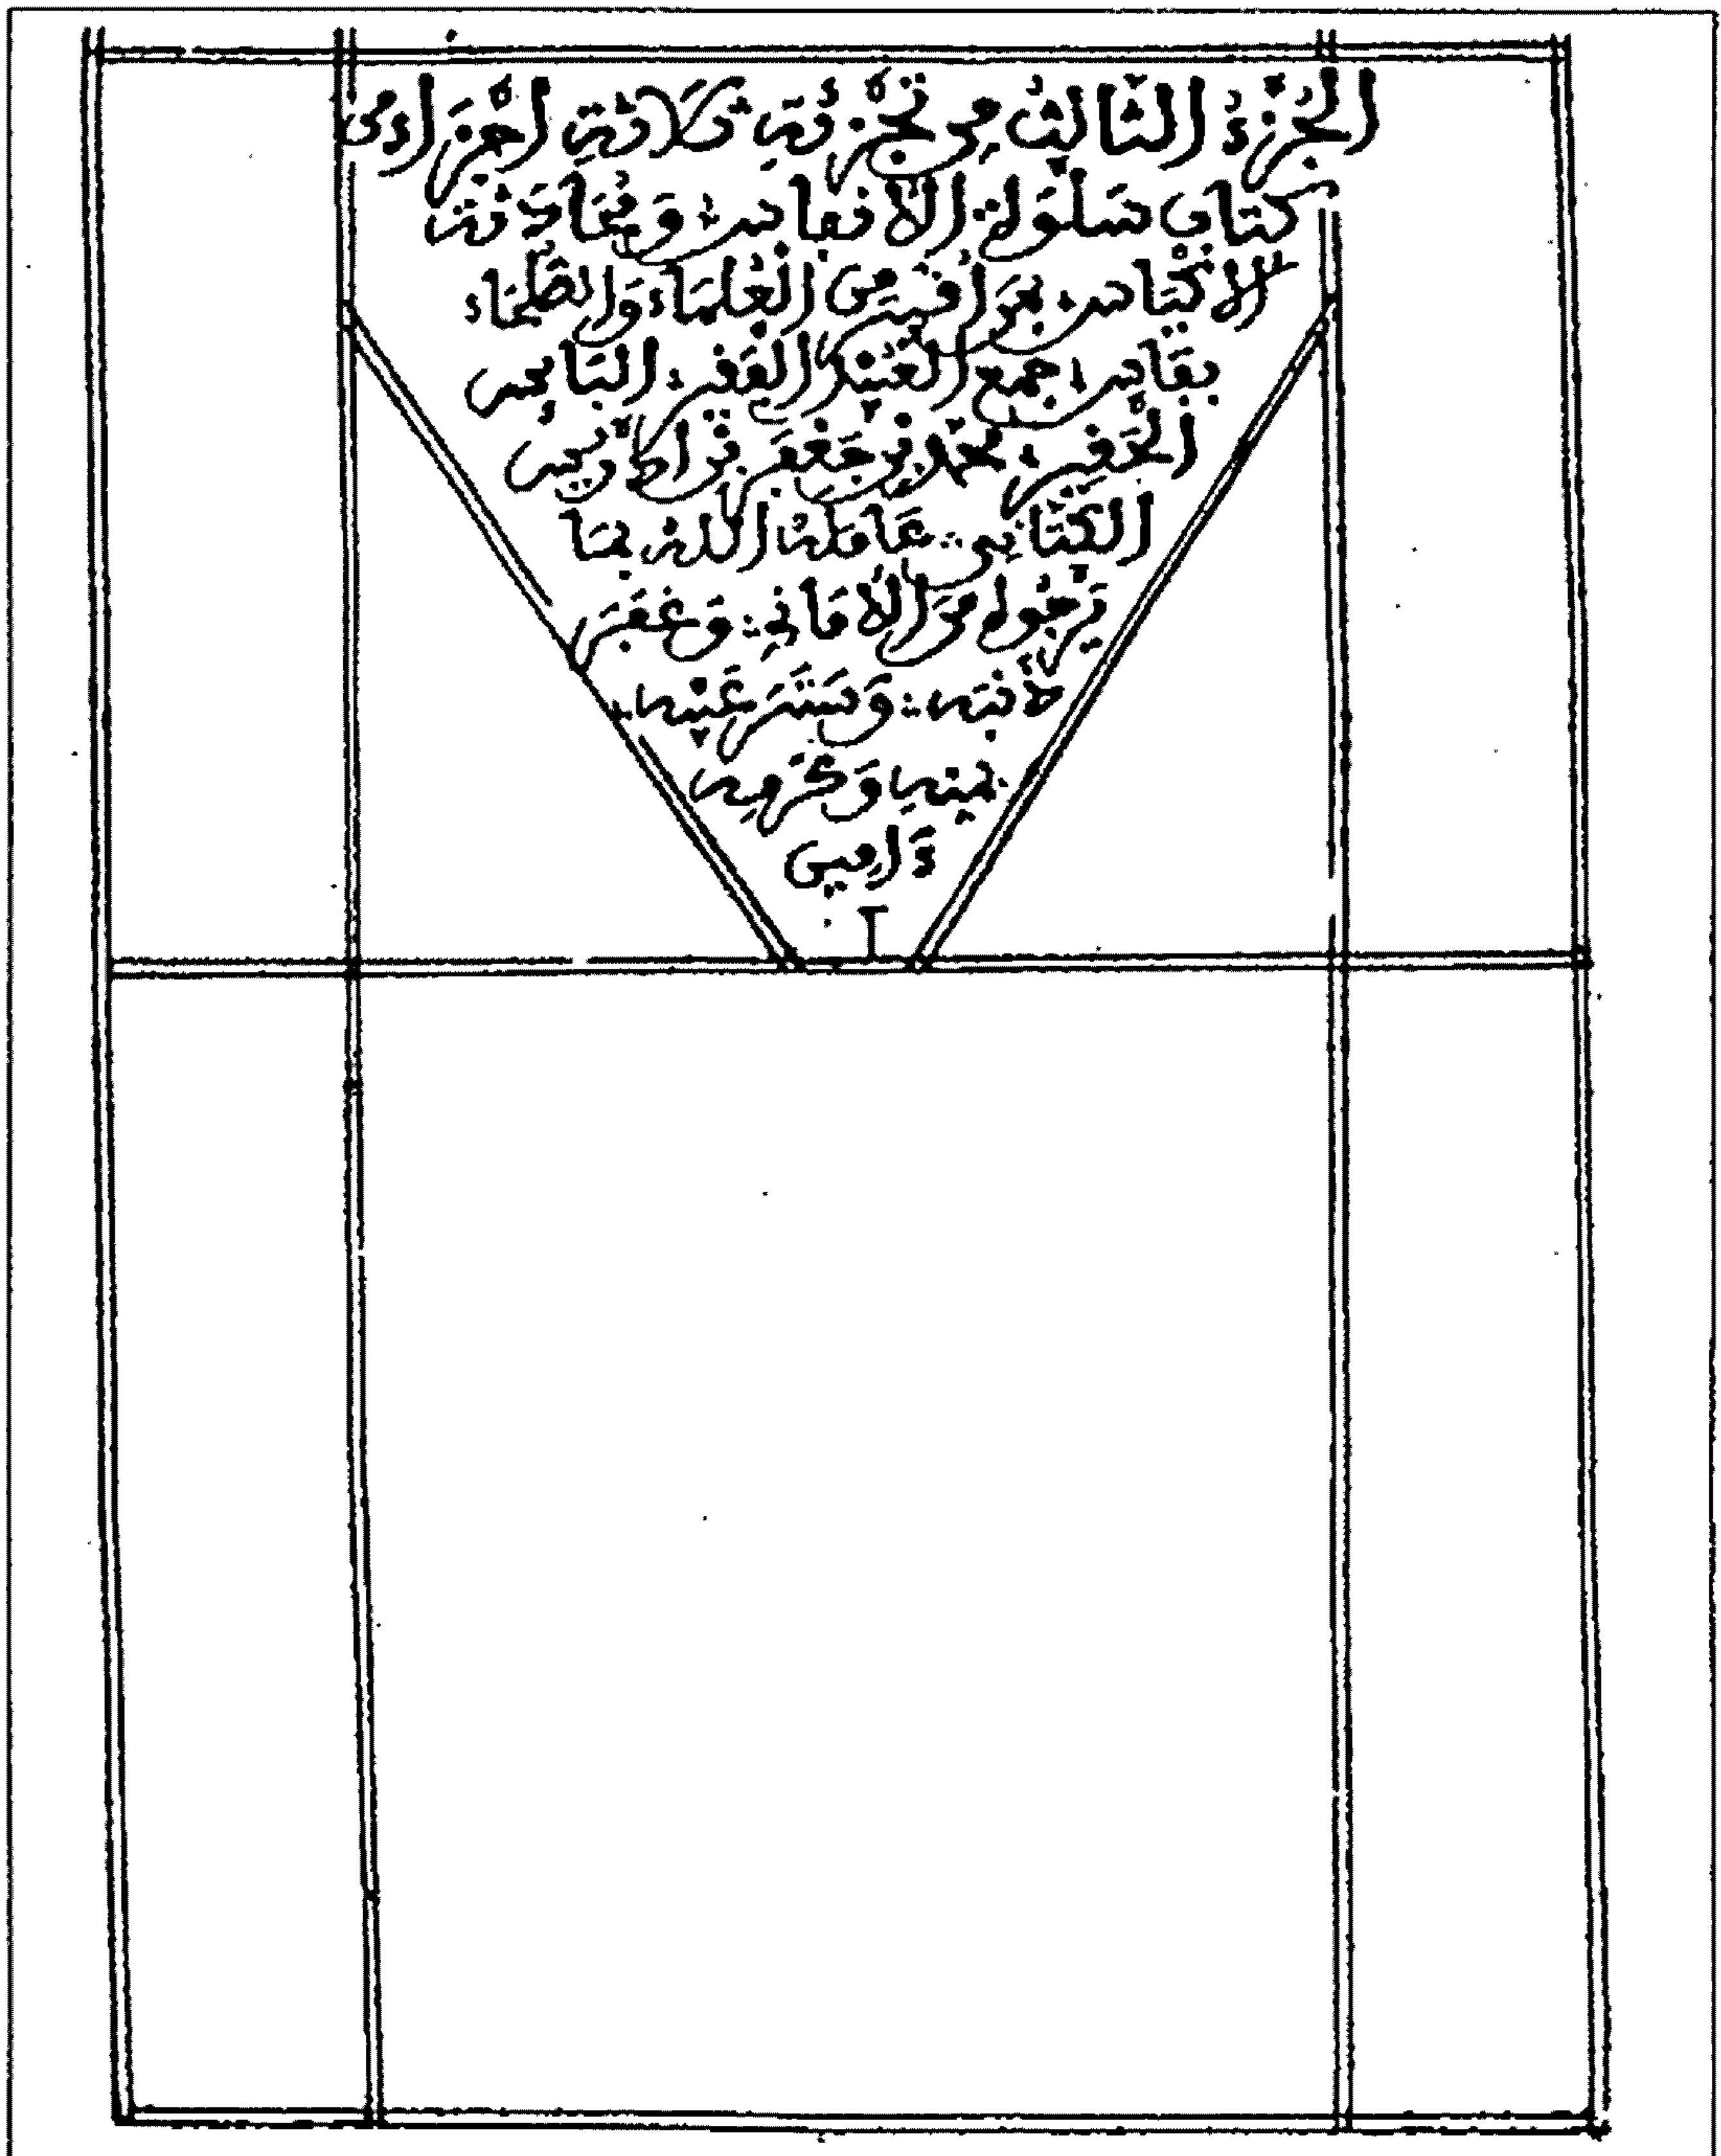 الجُزْءُ الثَّالِثُ مِن تَجْزِئَةِ ثَلَاثَةِ أَجْزَاءٍ من
كِتَابِ سَلْوَةِ الأَنْفَاسِ وَمُحَادَثَةِ
الأَكْيَاسِ بِمَنْ أُقْبِرَ مِنَ الْعُلَمَاءِ وَالصُّلَحَاءِ
بِفَاسِ جَمْعُ الْعَبْدِ الْفَقِيرِ الْبَائِسِ
الْحَقِيرِ مُحَمَّدِ بْنِ جَعْفَرِ بْنِ إِدْرِيسَ
الْكَتَّانِي عَامَلَهُ اللهُ بِمَا
يَرْجُوهُ مِنَ الأَمَانِي وَغَفَرَ
ذَنْبَهُ وَسَتَرَ عَيْبَهُ
بِمَنِّهِ وَكَرَمِهِ
ءَامِين